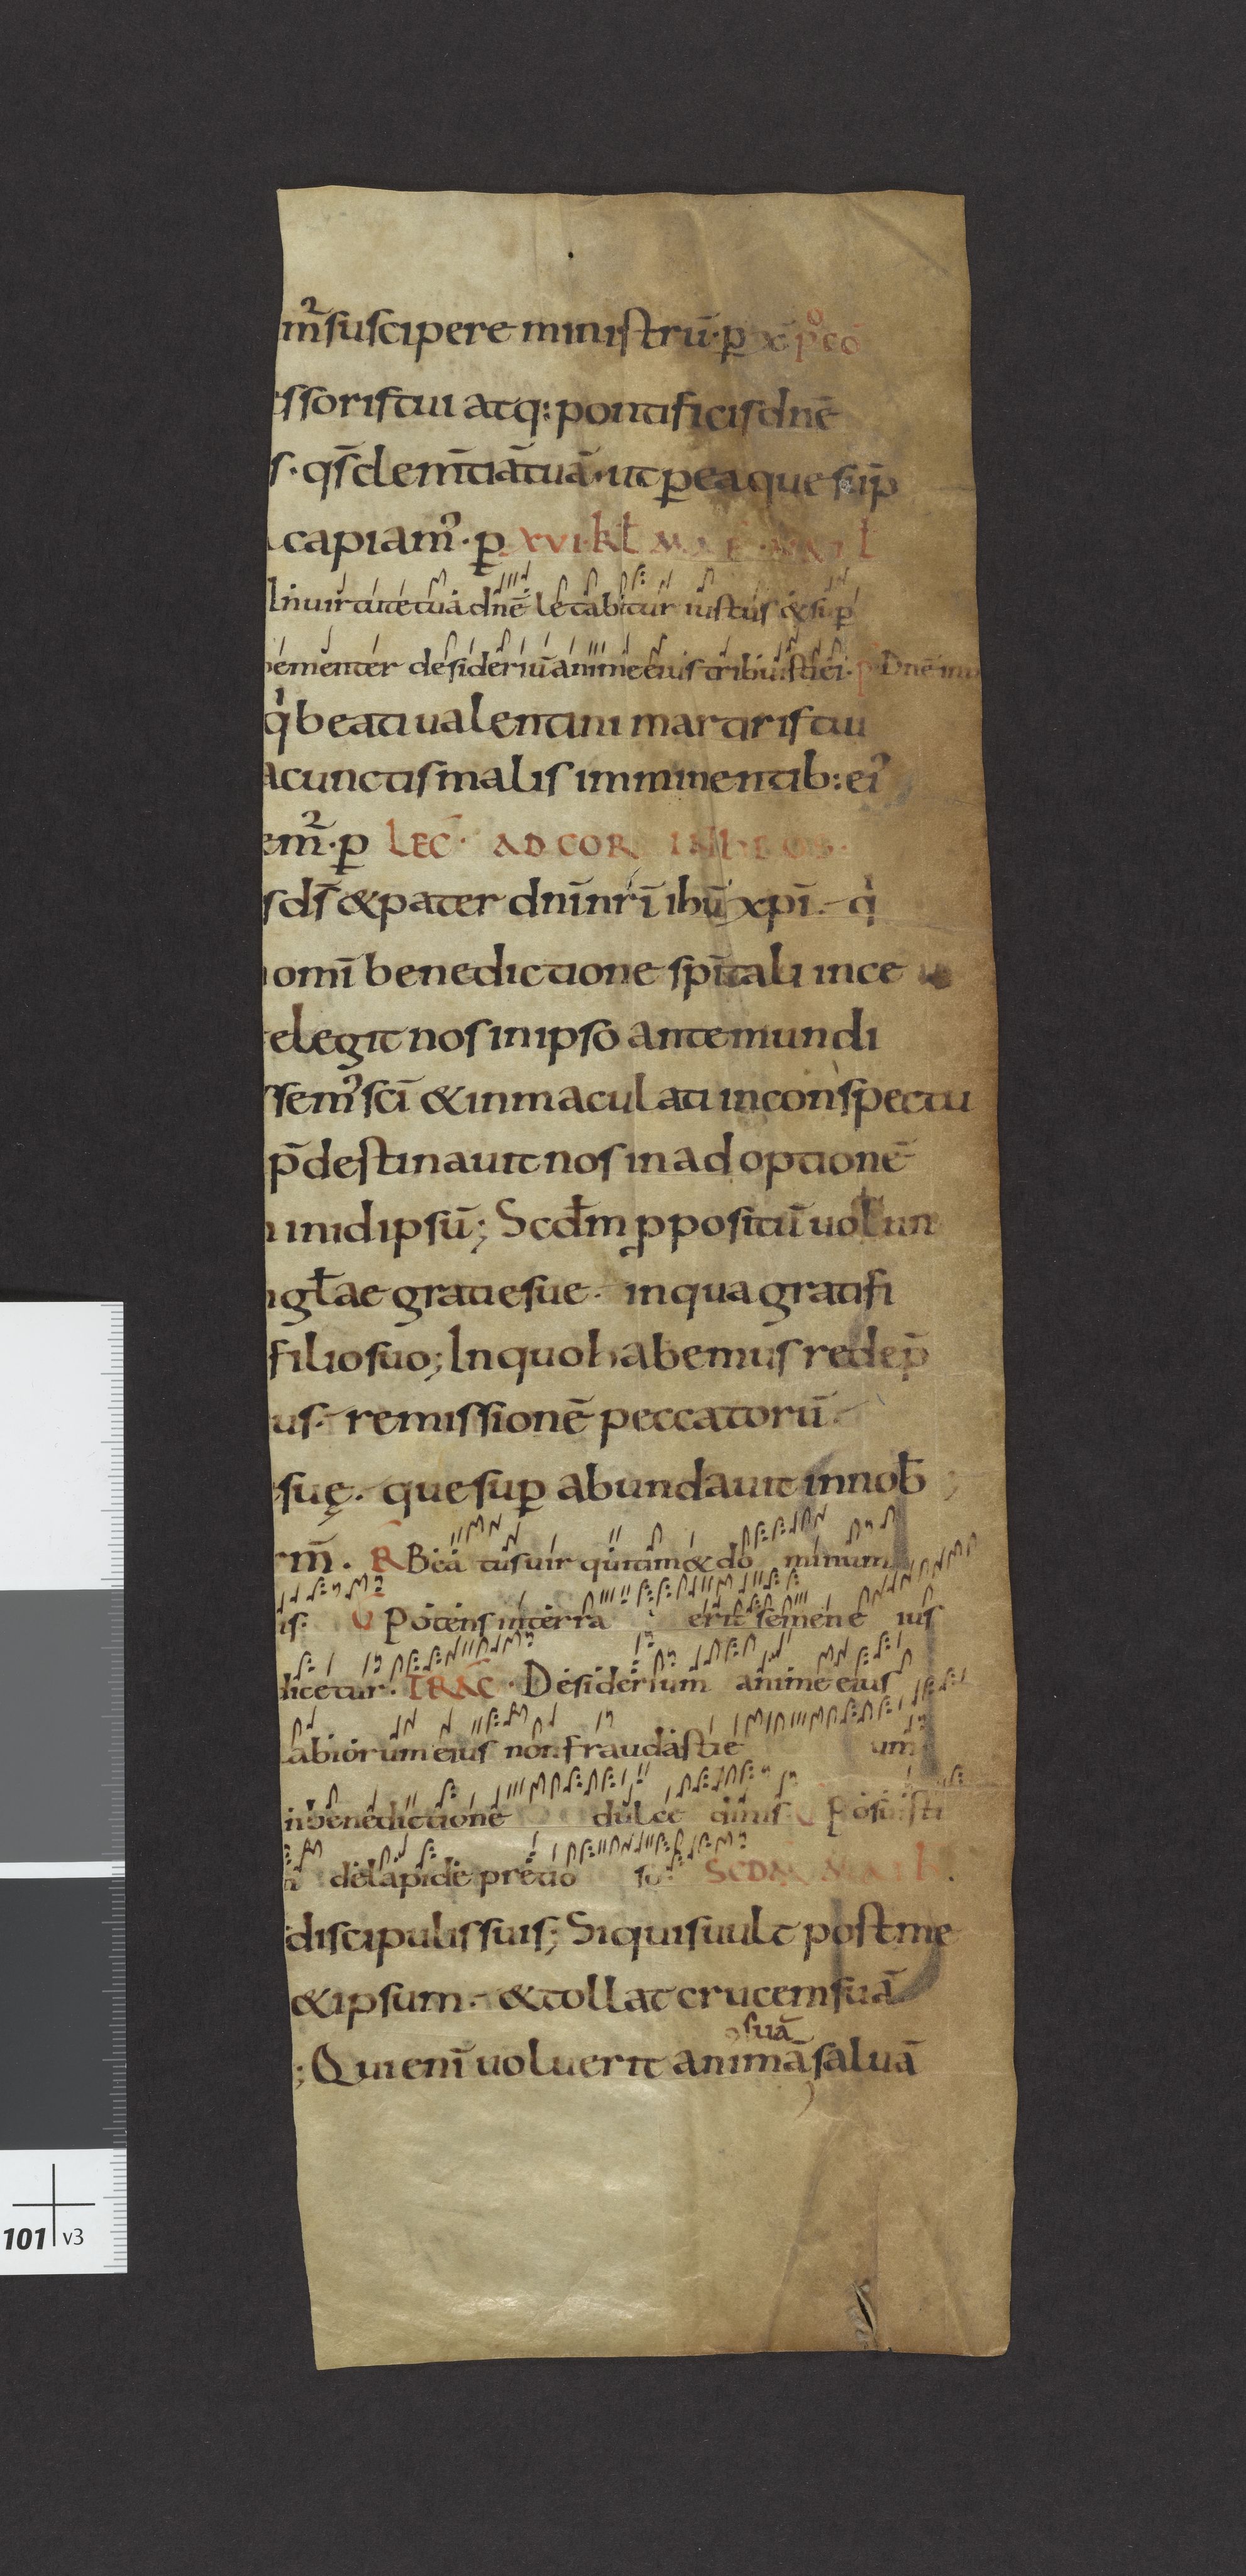 m̄r suscipere ministrū· p xē p̊cō
essoris tui atq: pontificis dn̄e
s· qs̄ clem̄tiā tuā· ut p ea que sūp
capiam᾿· p XVI· kl MAR· VAL
In uirtute tua dn̄e letabitur iustus & sup
ementer desideriū anime eius tribuisti ei· ps Dn̄e inu
q̇ beati ualentini martiris tui
a cunctis malis imminentib: ei᾿
em̄r· p LEC̄· AD COR IN DIEB
s ds̄ & pater dn̄i nr̄i ihū xpī· q̇
omī benedictione sp̄itali in ce
elegit nos in ipso ante mundi
ssem᾿ scī & inmaculati in conspectu
p̄destinauit nos in adoptionē
in idipsū; Scdm ppositū uolun
gl̄ae gratie sue· in qua gratifi
filio suo; In quo habemus redep̄
us· remissionē peccatorū·
suę· que sup abundauit in nob̄;
rm̄. R̄ Beatus uir qui tim& dominum
is. V Potens in terra erit semen eius
dicetur· TRAC̄· Desiderium anime eius
labiorum eius non fraudasti eum
in benedictione dulcedinis· V Posuisti
de lapide pretioso· SCDM MATH·
discipulis suis; Siquis uult post me
& ipsum· & tollat crucem suā
suā
; Qui enī uoluerit animā saluā
101 v3